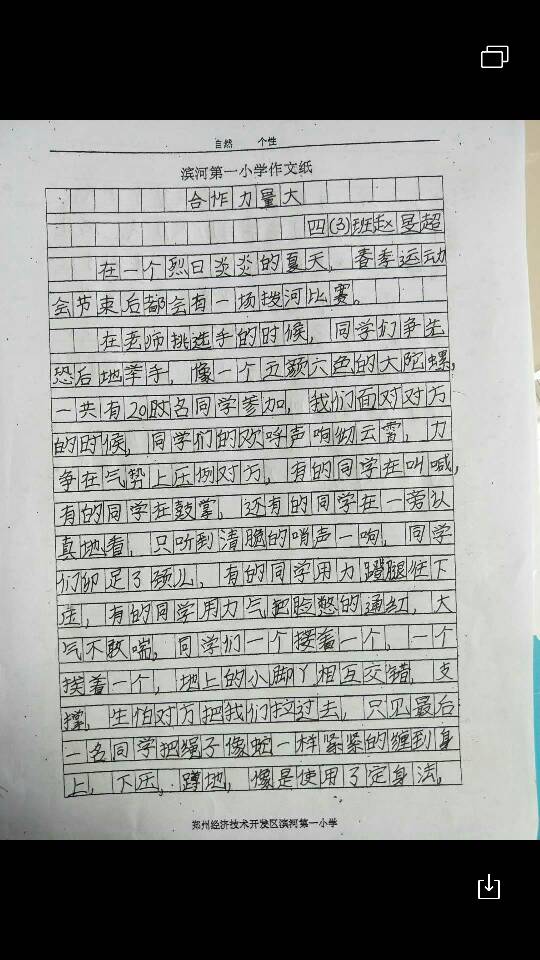 自然 个性
滨河第一小学作文纸
合作力量大
四(3)班赵晏超
在一个烈日炎炎的夏天，春季运动
会节束后都会有一场拨河比赛。
在老师挑选手的时候，同学们争先
恐后地举手，像一个五颜六色的大陀螺，
一共有20时名同学参加，我们面对对方
的时候，同学们的欢呼声响彻云霄，力
争在气势上压倒对方，有的同学在叫喊，
有的同学在鼓掌，还有的同学在一旁认
真地看，只听到清脆的哨声一响，同学
们卯足了颈儿，有的同学用力蹬腿往下
压，有的同学用力气把脸憋的通红，大
气不敢喘，同学们一个接着一个，一个
挨着一个，地上的小脚丫相互交错，支
撑，生怕对方把我们拉过去，只见最后
一名同学把绳子像蛇一样紧紧的缠到身
上，下压，蹲地，像是使用了定身法，
郑州经济技术开发区滨河第一小学